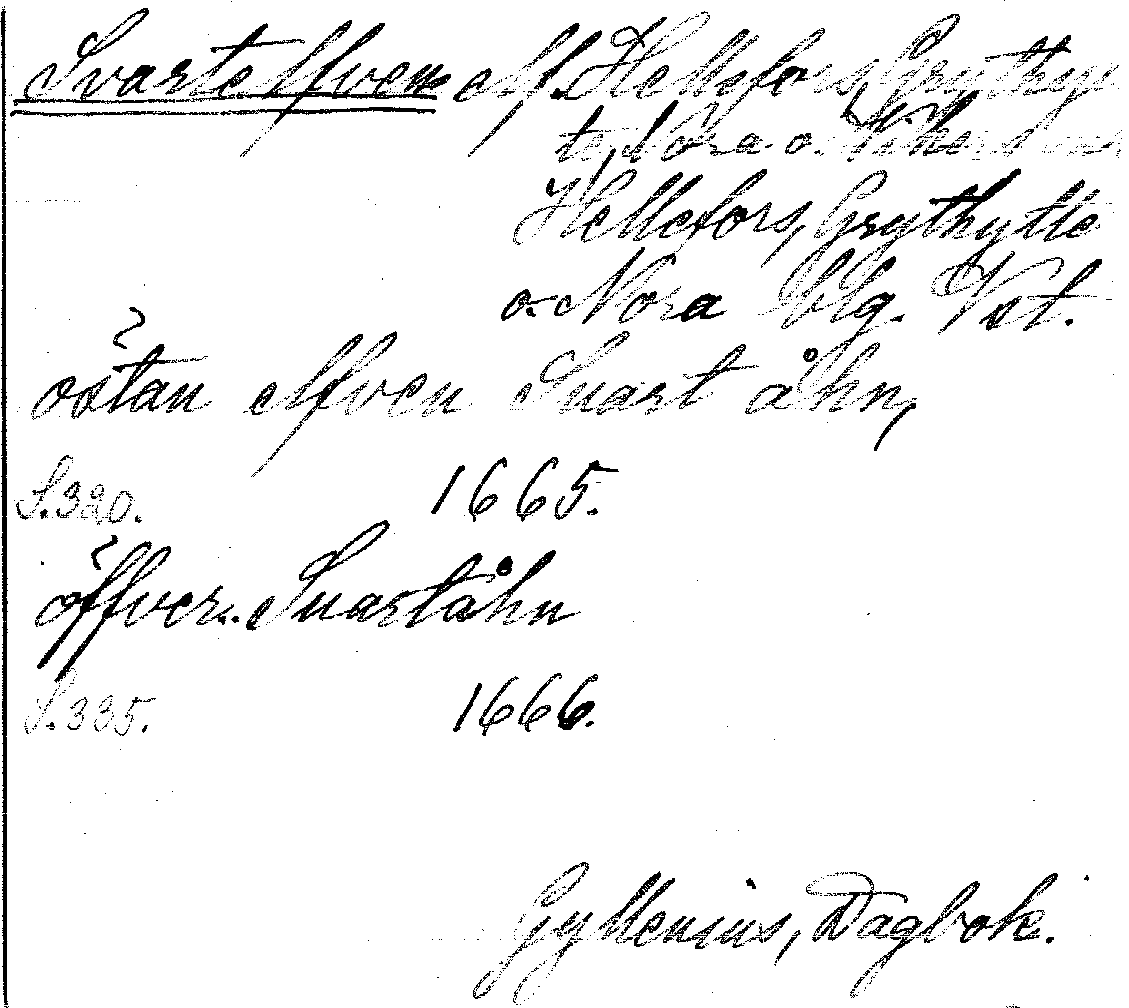 Svartelfven elf. Hellefors, Grythyt
te, Nora o. Vikers
Hellefors, Grythytte
o. Nora blg. Vst.
östan elfven Suart åhn,
S.320. 1665.
öffver. Suartåhn
S.335. 1666.
Gyllenius, Dagbok.